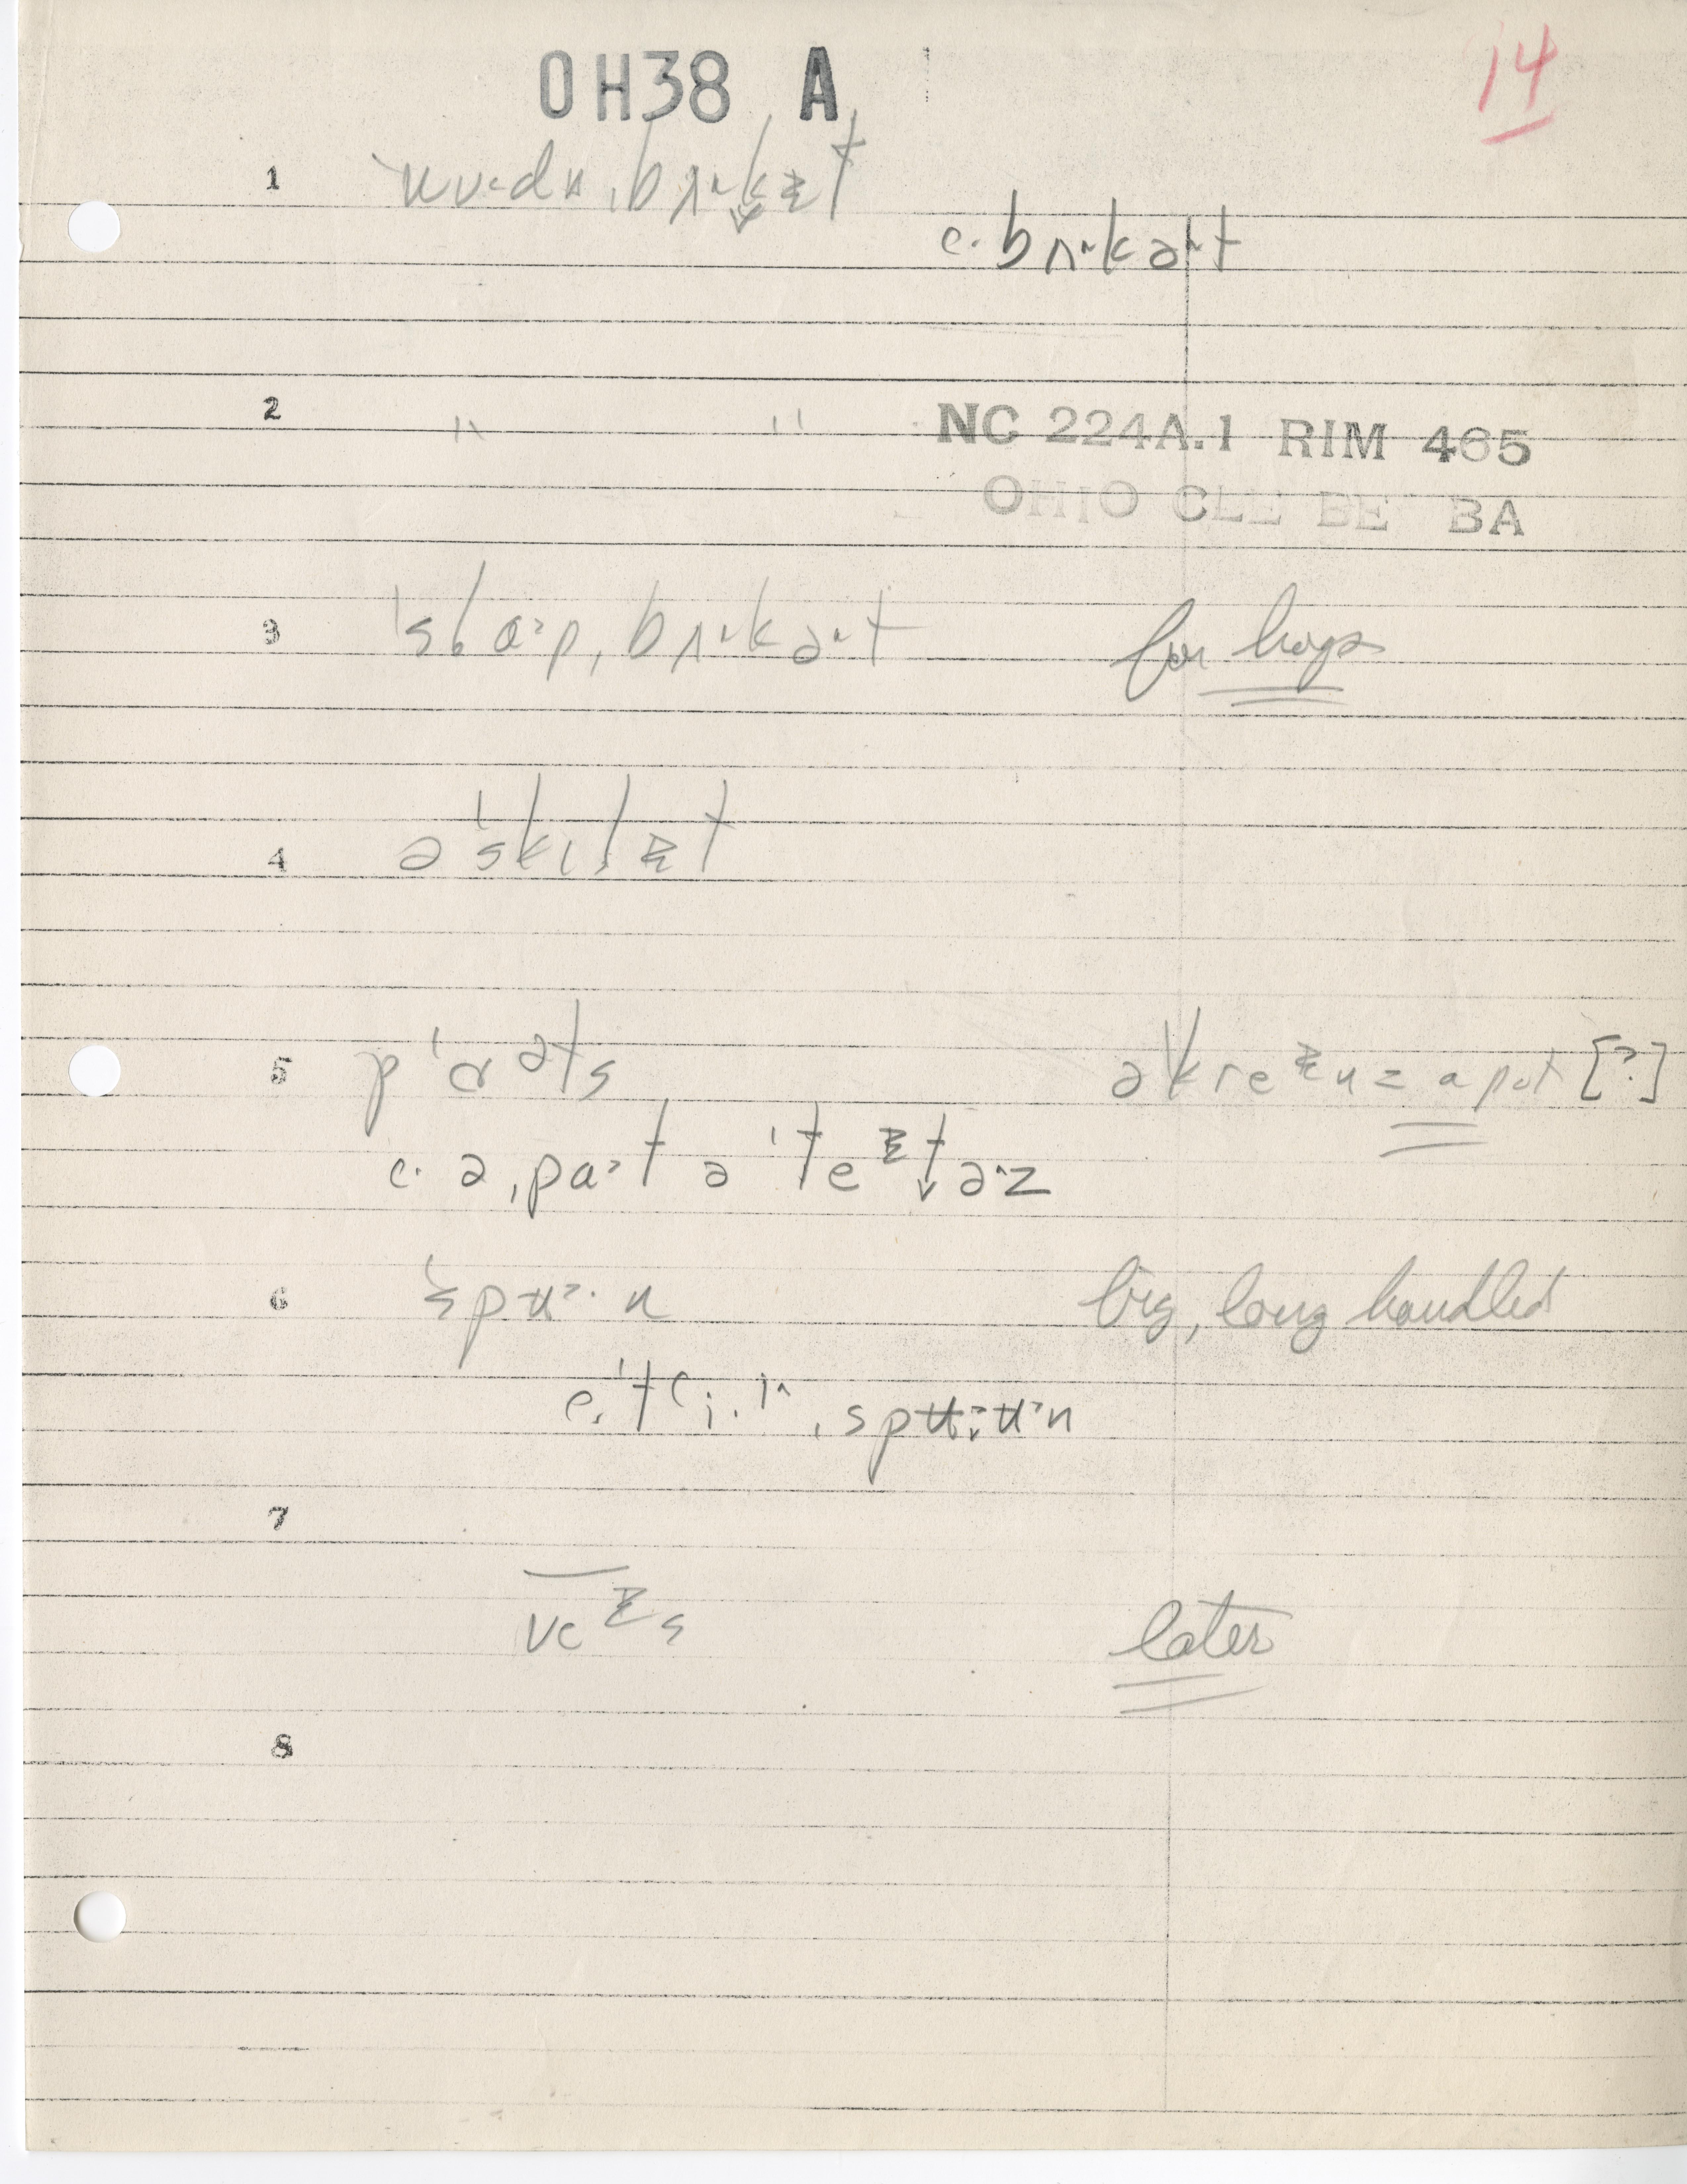 OH38 A
14
1 ˈwʊ·dn̩ ˌbʌ˄k̬ɨt
c. bʌ˄kə˄t
2 " "
NC 224A.1 RIM 465
OHIO CLE BE BA
3 ˈslɑ˃p ˌbʌ˄kə˄t for hogs
4 ə ˈskɪlɨt
5 pˈɑəts ə kreᵻn = a pot [?]
c. ə ˌpɑ˃t ə ˈteᵻt̬ə˄z
6 spʉ˃·n big, long handled
7
ve ᵻs later
8